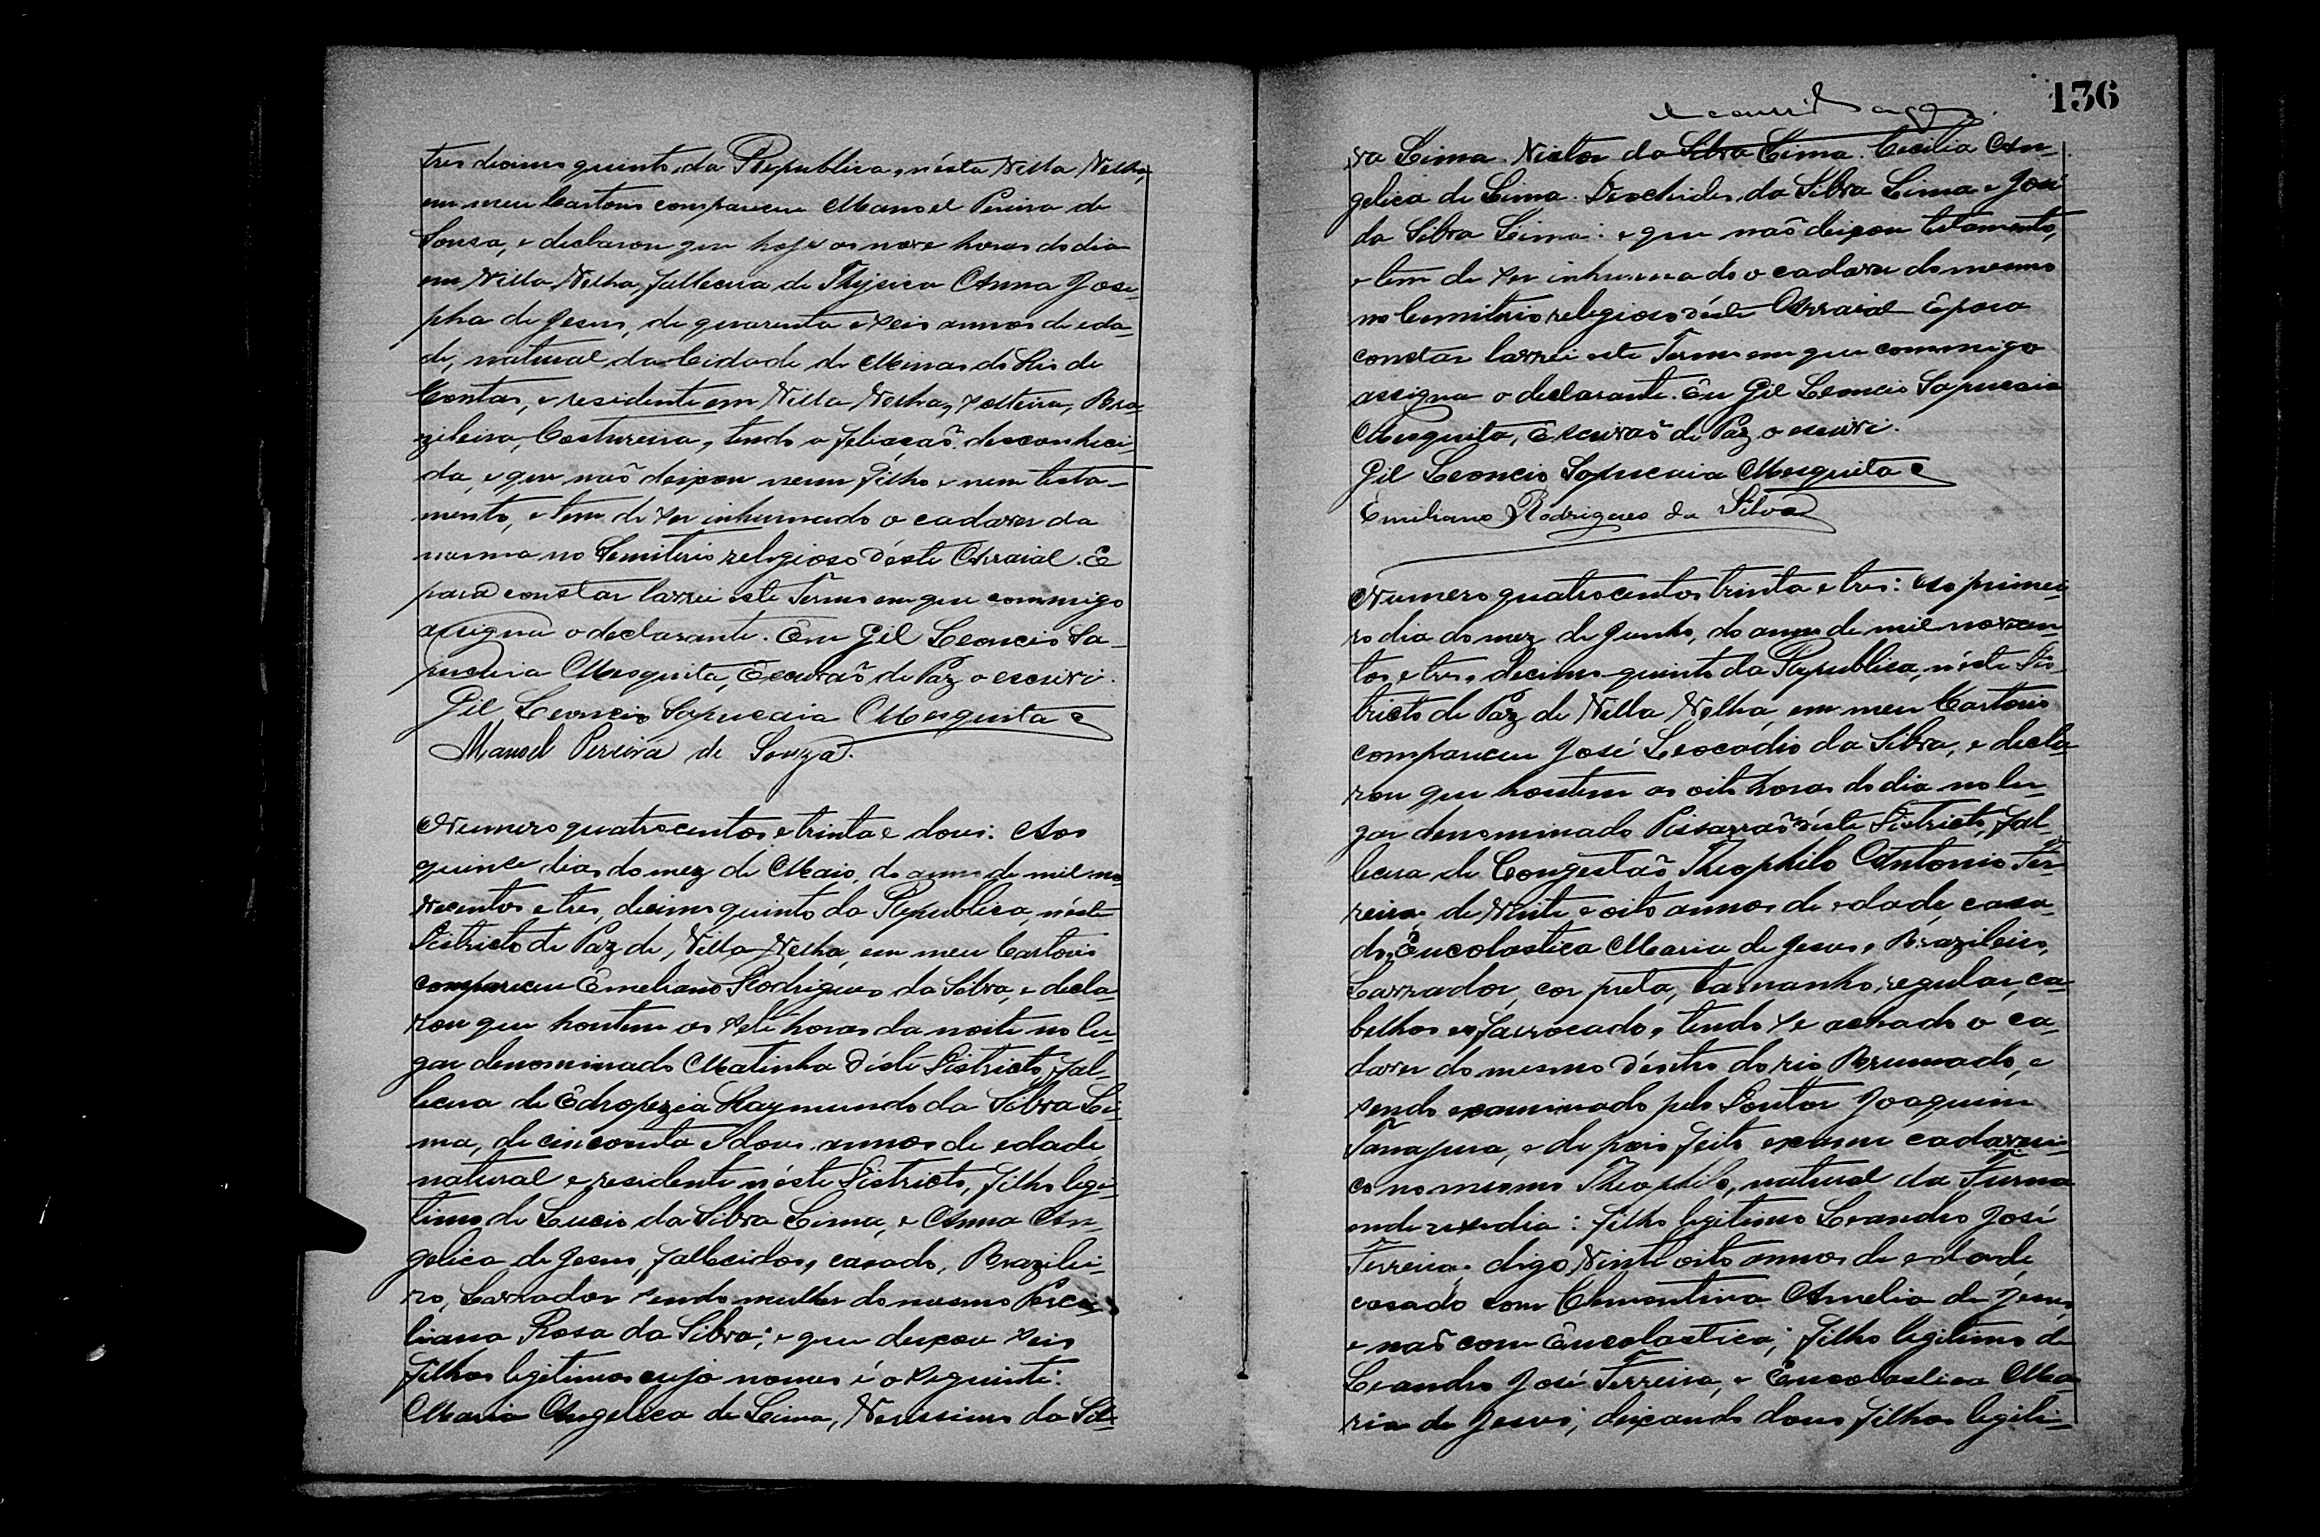 tres decimo quinto da Republica, nésta Villa Velha,
em meu Cartorio compareceu Manoel Pereira de
Sousa, e declarou que hoje as nove horas do dia
em Villa Velha, fallecera de Thysica Anna Jose-
pha de Jesus, de quarenta e seis annos de eda-
de, natural da Cidade de Minas do Rio de
Contas, e residente em Villa Velha, solteira, Bra-
zileira, Costureira, tendo a filiação desconheci-
da, e que não deixou nenum filho e nem testa-
mento, e tem de ser inhumado o cadaver da
mesma no Semiterio religioso déste Arraial. E
para constar lavrei este Termo em que commigo
assigna o declarante. Eu Gil Leoncio Sa-
pucaia Mesquita, Escrivão de Paz o escrivi.
Gil Leoncio Sapucaia Mesquita
Manoel Pereira de Souza.
Numero quatrocentos e trinta e dous: Aos
quinse dias do mez de Maio, do anno de mil no-
vecentos e tres, decimo quinto da Republica, néste
Districto de Paz de, Villa Velha, em meu Cartorio
compareceu Emeliano Rodrigues da Silva, e decla-
rou que hontem as sete horas da noite no lu-
gar denominado Matinha déste Districto, fal-
lecera de Edropezia Raymundo da Silva Li-
ma, de cincoenta e dous annos de edade,
natural e residente néste Districto, filho legi-
timo de Lucio da Silva Lima, e Anna An-
gelica de Jesus, fallecidos, casado, Brazilei-
ro, Lavrador sendo mulher do mesmo
Rosa da Silva; e que deixou seis
filhos legitimos cujo nomes é o seguinte:
Maria Angelica de Lima, Verissimo da Sil-
136
va Lima. Victor da Silva Lima. Cecilia An-
gelica de Lima. da Silva Lima e José
da Silva Lima: e que não deixou testamento,
e tem de ser inhumado o cadaver do mesmo
no Cemiterio religioso déste Arraial E para
constar lavrei este Termo em que commigo
assigna o declarante. Eu Gil Leoncio Sapucaia
Mesquita, Escrivão de Paz o escrivi.
Gil Leoncio Sapucaia Mesquita
Emiliano Rodrigues da Silva
Numero quatrocentos trinta e tres: Ao primei-
ro dia do mez de Junho, do anno de mil novecen-
tos e tres, decimo quinto da Republica, néste Dis-
tricto de Paz de Villa Velha, em meu Cartorio
compareceu José Leocadio da Silva, e decla-
rou que hontem as oito horas do dia no lu-
gar denominado Pissarrão déste Districto, fal-
lecera de Congestão Theophilo Antonio Fer-
reira, de Vinte e oito annos de edade, casa-
do, Eucolastica Maria de Jesus, Brazileiro,
Lavrador, cor preta, tamanho, regular, ca-
bellos esfarrocado, tendo se achado o ca-
daver do mesmo déntro do rio Brumado, e
sendo examinado pelo Doutor Joaquim
Tanajura, e de pois feito exame cadaveri-
co no mesmo Theophilo, natural da Furna
onde residia: filho legitimo Leandro José
Ferreira, digo, Vinte oito annos de edade,
casado com Clementina Amelia de Jesus,
e não com Euscolastica; filho legitimo de
Leandro José Ferreira, e Euscolastica Ma-
ria de Jesus; deixando dous filhos legiti-